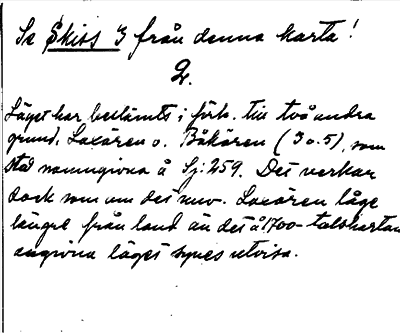 Se Skiss 3 från denna karta!
2.
Läget har bestämts i förh. till två andra
grund. Laxören o. Båkören (3 o. 5), som
stå namngivna å Sj: 259. Det verkar
dock som om det nuv. Laxören låge
längre från land än det å 1700-talskartan
angivna läget synes utvisa.